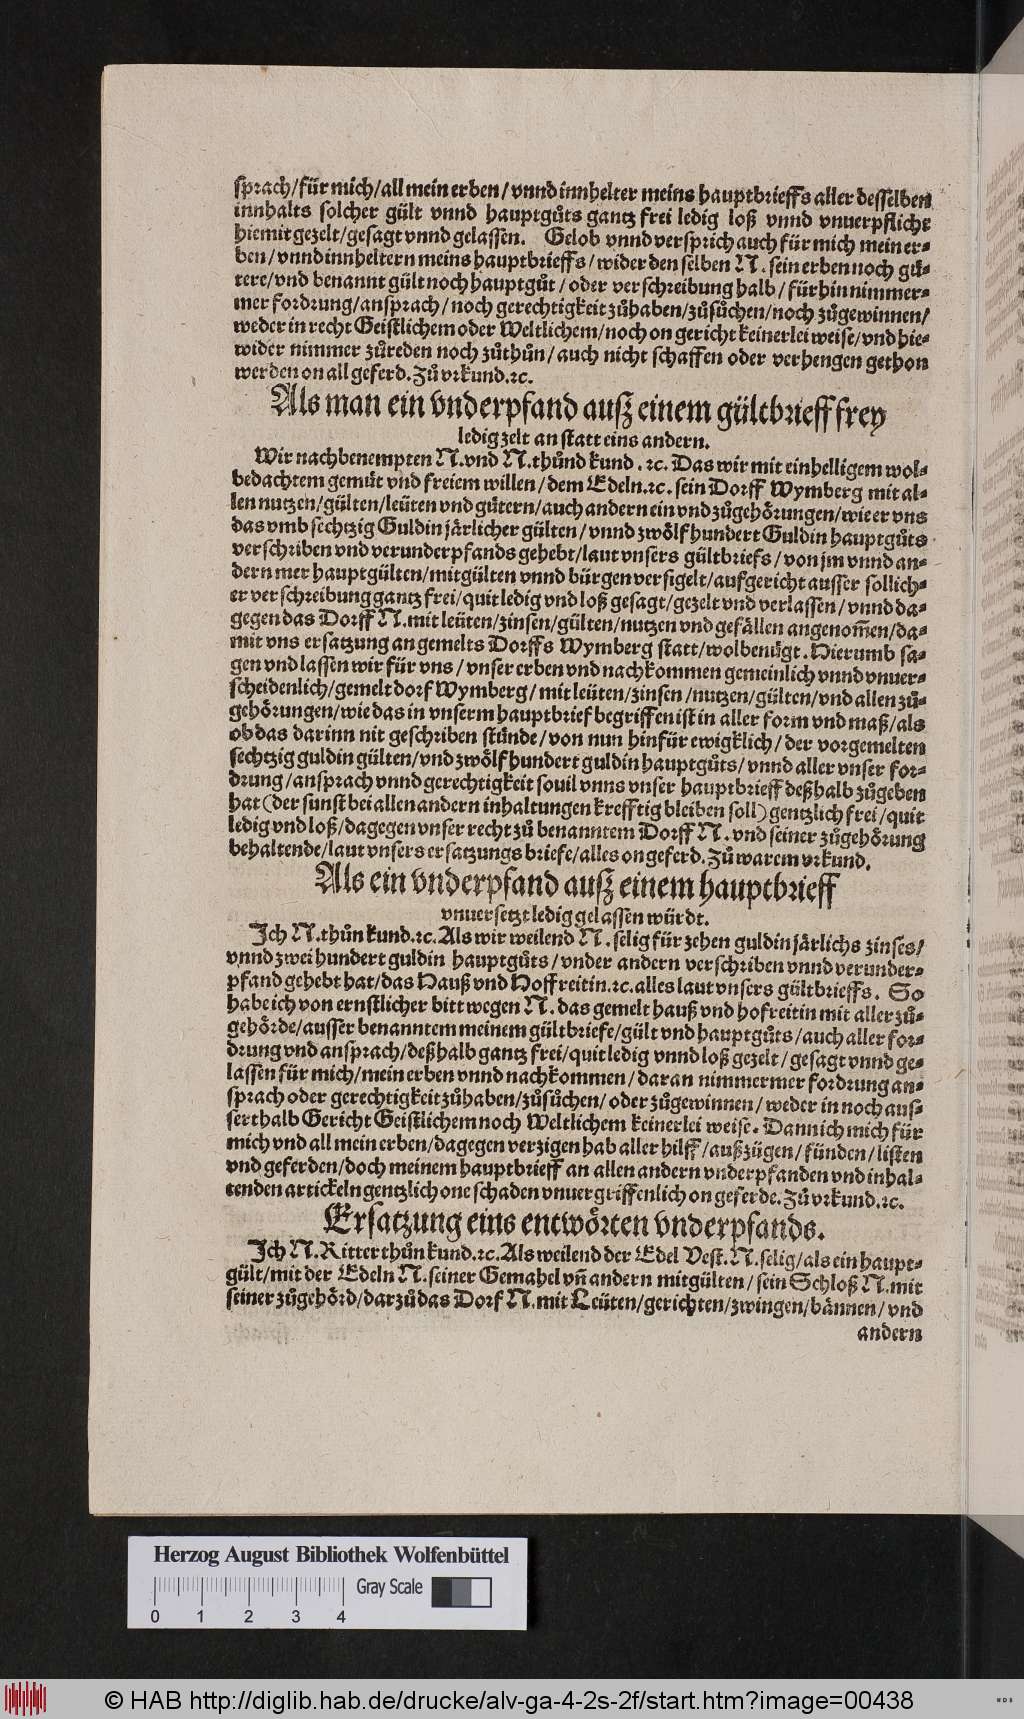 sprach/für mich/all mein erben/vnnd innhelter meins hauptbrieffs aller desselben
innhalts solcher gült vnnd hauptgůts gantz frei ledig loß vnnd vnuerpflicht
hiemit gezelt/gesagt vnnd gelassen. Gelob vnnd versprich auch für mich mein er-
ben/vnnd innheltern meins hauptbrieffs/wider den selben N. sein erben noch gü-
tere/vnd benannt gült noch hauptgůt/oder verschreibung halb/fürhin nimmer-
mer fordrung/ansprach/noch gerechtigkeit zůhaben/zůsůchen/noch zůgewinnen/
weder in recht Geistlichem oder Weltlichem/noch on gericht keinerlei weise/vnd hie-
wider nimmer zůreden noch zůthůn/auch nicht schaffen oder verhengen gethon
werden on all geferd. Zů vrkund.ꝛc.
Als man ein vnderpfand auß einem gültbrieff frey
ledig zelt an statt eins andern.
Wir nachbenempten N. vnd N. thůnd kund.ꝛc. Das wir mit einhelligem wol-
bedachtem gemüt vnd freiem willen/dem Edeln.ꝛc. sein Dorff Wymberg mit al-
len nutzen/gülten/leüten vnd gütern/auch andern ein vnd zůgehörungen/wie er vns
das vmb sechtzig Guldin järlicher gülten/vnnd zwölf hundert Guldin hauptgůts
verschriben vnd verunderpfands gehebt/laut vnsers gültbriefs/von jm vnnd an-
dern mer hauptgülten/mitgülten vnnd bürgen versigelt/aufgericht ausser sollich-
er verschreibung gantz frei/quit ledig vnd loß gesagt/gezelt vnd verlassen/vnnd da-
gegen das Dorff N. mit leüten/zinsen/gülten/nutzen vnd gefällen angenom̃en/da-
mit vns ersatzung angemelts Dorffs Wymberg statt/wolbenügt. Hierumb sa-
gen vnd lassen wir für vns/vnser erben vnd nachkommen gemeinlich vnnd vnuer-
scheidenlich/gemelt dorf Wymberg/mit leüten/zinsen/nutzen/gülten/vnd allen zů-
gehörungen/wie das in vnserm hauptbrief begriffen ist in aller form vnd maß/als
ob das darinn nit geschriben stünde/von nun hinfür ewigklich/der vorgemelten
sechtzig guldin gülten/vnd zwölf hundert guldin hauptgůts/vnnd aller vnser for-
drung/ansprach vnnd gerechtigkeit souil vnns vnser hauptbrieff deßhalb zůgeben
hat(der sunst bei allen andern inhaltungen krefftig bleiben soll)gentzlich frei/quit
ledig vnd loß/dagegen vnser recht zů benanntem Dorff N. vnd seiner zůgehörung
behaltende/laut vnsers ersatzungs briefe/alles on geferd. Zů warem vrkund.
Als ein vnderpfand auß einem hauptbrieff
vnuersetzt ledig gelassen würdt.
Ich N. thůn kund.ꝛc. Als wir weilend N. selig für zehen guldin järlichs zinses/
vnnd zwei hundert guldin hauptgůts/vnder andern verschriben vnnd verunder-
pfand gehebt hat/das Hauß vnd Hoffreitin.ꝛc. alles laut vnsers gültbrieffs. So
habe ich von ernstlicher bitt wegen N. das gemelt hauß vnd hofreitin mit aller zů-
gehörde/ausser benanntem meinem gültbriefe/gült vnd hauptgůts/auch aller for-
drung vnd ansprach/deßhalb gantz frei/quit ledig vnnd loß gezelt/gesagt vnnd ge-
lassen für mich/mein erben vnnd nachkommen/daran nimmermer fordrung an-
sprach oder gerechtigkeit zůhaben/zůsůchen/oder zůgewinnen/weder in noch aus-
serthalb Gericht Geistlichem noch Weltlichem keinerlei weise. Dann ich mich für
mich vnd all mein erben/dagegen verzigen hab aller hilff/außzügen/fünden/listen
vnd geferden/doch meinem hauptbrieff an allen andern vnderpfanden vnd inhal-
tenden artickeln gentzlich one schaden vnuergriffenlich on geferde. Zů vrkund.ꝛc.
Ersatzung eins entwörten vnderpfands.
Ich N. Ritter thůn kund.ꝛc. Als weilend der Edel Vest. N. selig/als ein haupt-
gült/mit der Edeln N. seiner Gemahel vñ andern mitgülten/sein Schloß N. mit
seiner zůgehörd/darzů das Dorf N. mit Leüten/gerichten/zwingen/bännen/vnd
andern
Herzog August Bibliothek Wolfenbüttel
Gray Scale
0 1 2 3 4
© HAB http://diglib.hab.de/drucke/alv-ga-4-2s-2f/start.htm?image=00438